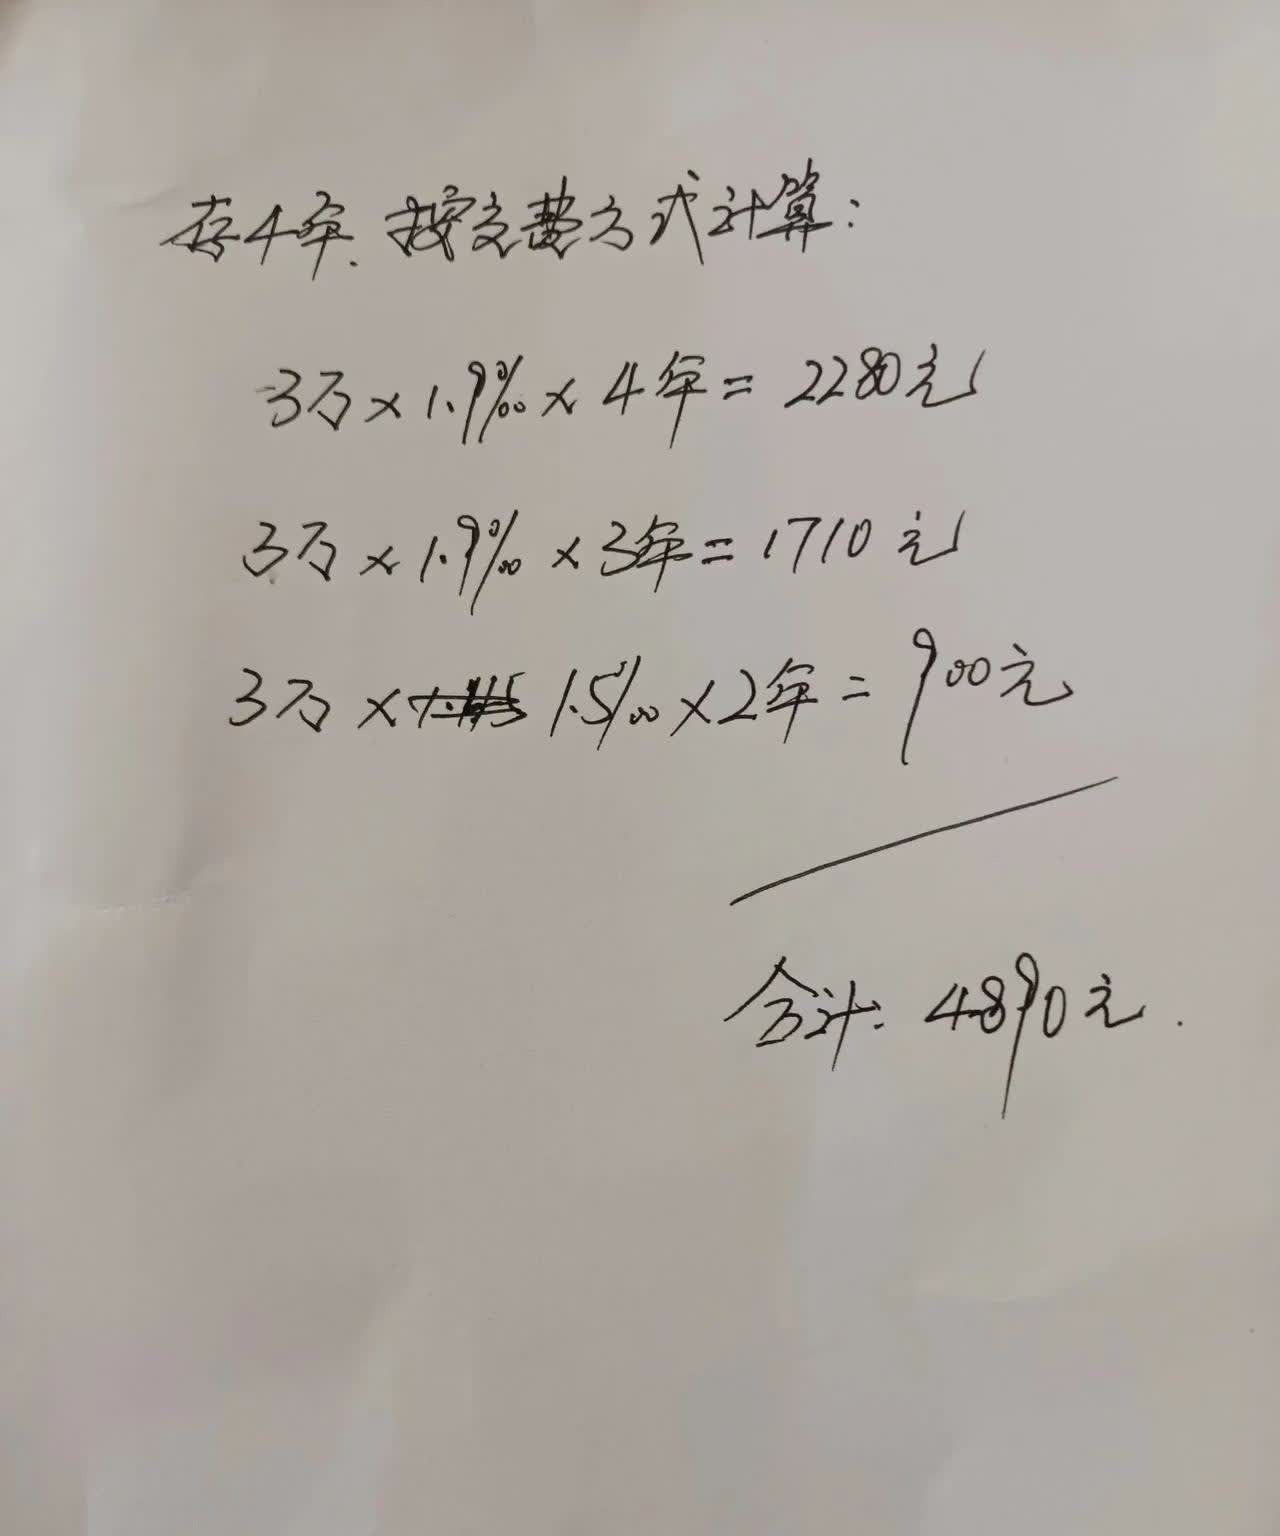 存4年.按交费方式计算:
3万×1.9‰×4年=2280元
3万×1.9‰×3年=1710元
3万×1.5‰×2年=900元
合计:4890元.